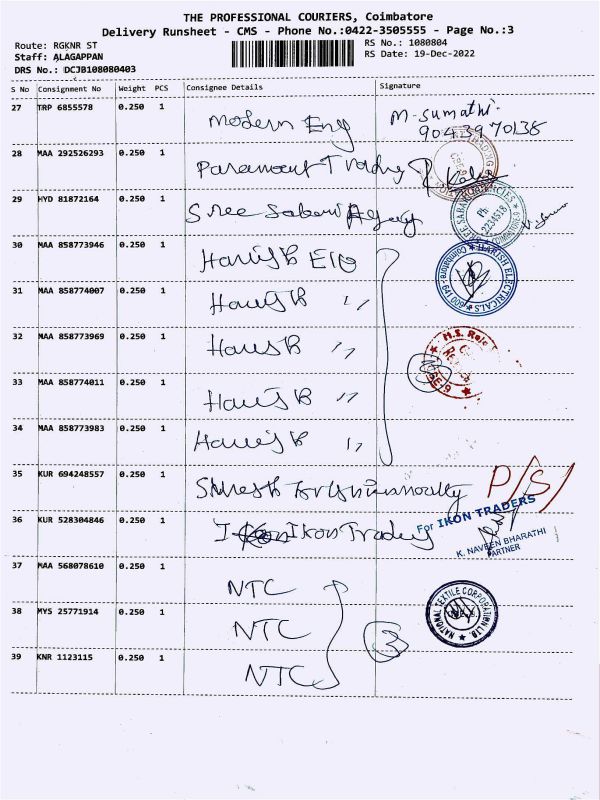 THE PROFESSIONAL COURIERS, Coimbatore
Delivery Runsheet - CMS - Phone No.:0422-3505555 - Page No.:3
Route: RGKNR ST
RS No.: 1080804
Staff: ALAGAPPAN
RS Date: 19-Dec-2022
DRS No.: DCJB108080403
S No Consignment No Weight PCS Consignee Details Signature
27 TRP 6855578 0.250 1 Modern Eng M. Sumathi.
9043970138
28 MAA 292526293 0.250 1 Paramount Trading
29 HYD 81872164 0.250 1 Sree Sabari Agency
Ph: 2234518
30 MAA 858773946 0.250 1 Harish Ele
HARISH ELECTRICALS
31 MAA 858774007 0.250 1 Harish ,,
32 MAA 858773969 0.250 1 Harish ,,
M.S.
33 MAA 858774011 0.250 1 Harish ,,
34 MAA 858773983 0.250 1 Harish ,,
35 KUR 694248557 0.250 1 P/S/
36 KUR 528304846 0.250 1 Ikon Trading
For IKON TRADERS
K. NAVEEN BHARATHI
PARTNER
37 MAA 568078610 0.250 1 NTC
38 MYS 25771914 0.250 1 NTC 3
NATIONAL TEXTILE CORPORATION LTD.
39 KNR 1123115 0.250 1 NTC